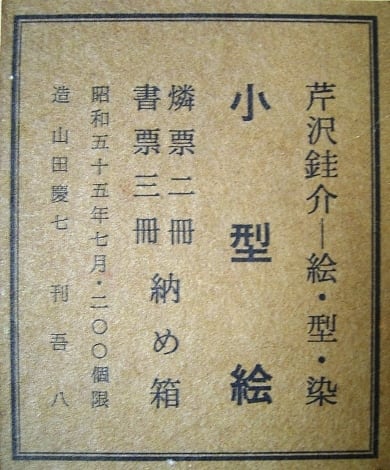 芹沢銈介―絵・型・染
小型絵
燐票二冊
書票三冊
納め箱
昭和五十五年七月・二〇〇個限
造 山田慶七 刊 吾八